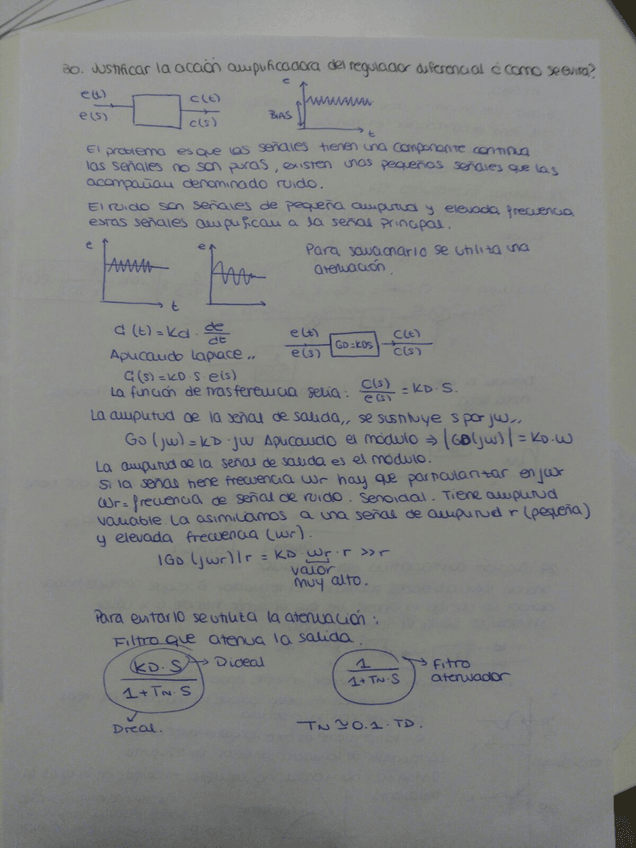 20. Justificar la acción amplificadora del regulador diferencial ¿como se evita?
e(t) c(t)
e(s) c(s)
e
BIAS
t
El problema es que las señales tienen una componente continua
las señales no son puras, existen unas pequeñas señales que las
acompañan denominado ruido.
El ruido son señales de pequeña amplitud y elevada frecuencia
estas señales amplifican a la señal principal.
e
t
e
Para solucionarlo se utiliza una
atenuación.
C(t) = Kd · de/dt
Aplicando laplace..
C(s) = KD · S · e(s)
e(t) c(t)
e(s) GD=KDS c(s)
La función de trasferencia sería: C(s)/e(s) = KD · S.
La amplitud de la señal de salida,, se sustituye s por jw..
GD (jw) = KD · jw Aplicando el módulo ⇒ |GD(jw)| = KD·W
La amplitud de la señal de salida es el módulo.
Si la señal tiene frecuencia wr hay que particularizar en jwr
Wr = frecuencia de señal de ruido. Senoidal. Tiene amplitud
variable la asimilamos a una señal de amplitud r (pequeña)
y elevada frecuencia (wr).
|GD (jwr)| r = KD · wr · r >> r
valor
muy alto.
Para evitarlo se utiliza la atenuación:
Filtro que atenua la salida.
KD·S / 1+TN·S → D ideal
Dreal.
1 / 1+TN·S → Fitro
atenuador
TN ≃ 0.1 · TD.